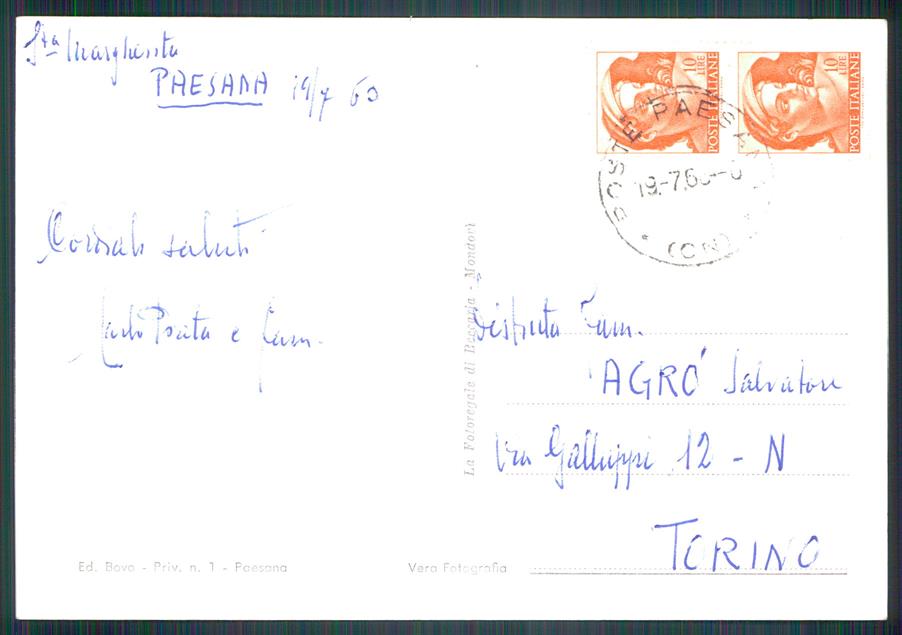 Sta Margherita
PAESANA 19/7 63
10 LIRE
POSTE ITALIANE
10 LIRE
POSTE ITALIANE
POSTE PAESANA
19.-7.6
(CN)
Cordiali saluti
Prata e Fam.
La Fotoregale di Beccaria - Mondovì
Distinta Fam.
AGRÒ Salvatore
Via Galluppi 12 - N
TORINO
Ed. Bovo - Priv. n. 1 - Paesana
Vera Fotografia